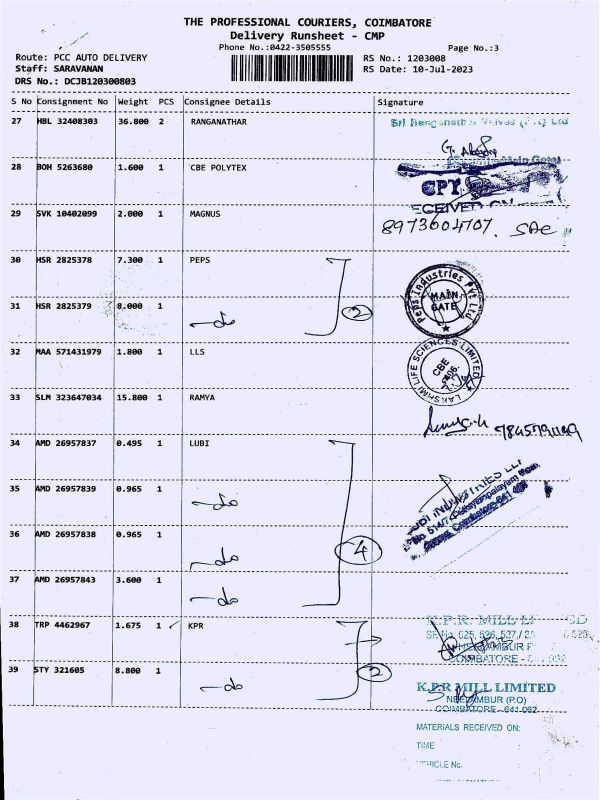 THE PROFESSIONAL COURIERS, COIMBATORE
Delivery Runsheet - CMP
Phone No.:0422-3505555 Page No.:3
Route: PCC AUTO DELIVERY RS No.: 1203008
Staff: SARAVANAN RS Date: 10-Jul-2023
DRS No.: DCJB120300803
S No Consignment No Weight PCS Consignee Details Signature
27 HBL 32408303 36.800 2 RANGANATHAR
28 BOH 5263680 1.600 1 CBE POLYTEX
CPT
29 SVK 10402099 2.000 1 MAGNUS
8973604707. SAC
30 HSR 2825378 7.300 1 PEPS
Peps Industries Pvt Ltd
MAIN GATE
31 HSR 2825379 8.000 1 -do 2
32 MAA 571431979 1.800 1 LLS
LAKSHMI LIFE SCIENCES LIMITED
CBE
33 SLM 323647034 15.800 1 RAMYA
34 AMD 26957837 0.495 1 LUBI
35 AMD 26957839 0.965 1 -do
36 AMD 26957838 0.965 1 -do 4
37 AMD 26957843 3.600 1 -do
38 TRP 4462967 1.675 1 KPR
K.P.R. MILL
COIMBATORE
39 STY 321605 8.800 1 -do 2
K.P.R MILL LIMITED
NEELAMBUR (P.O)
COIMBATORE - 641 062
MATERIALS RECEIVED ON:
TIME :
VEHICLE No. :